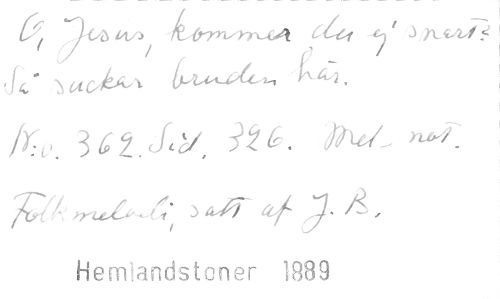 O, Jesus, kommer du ej snart?
Så suckar bruden här.
N:o. 362. Sid. 326. Mel. not.
Folkmelodi, satt af J. B.
Hemlandstoner 1889